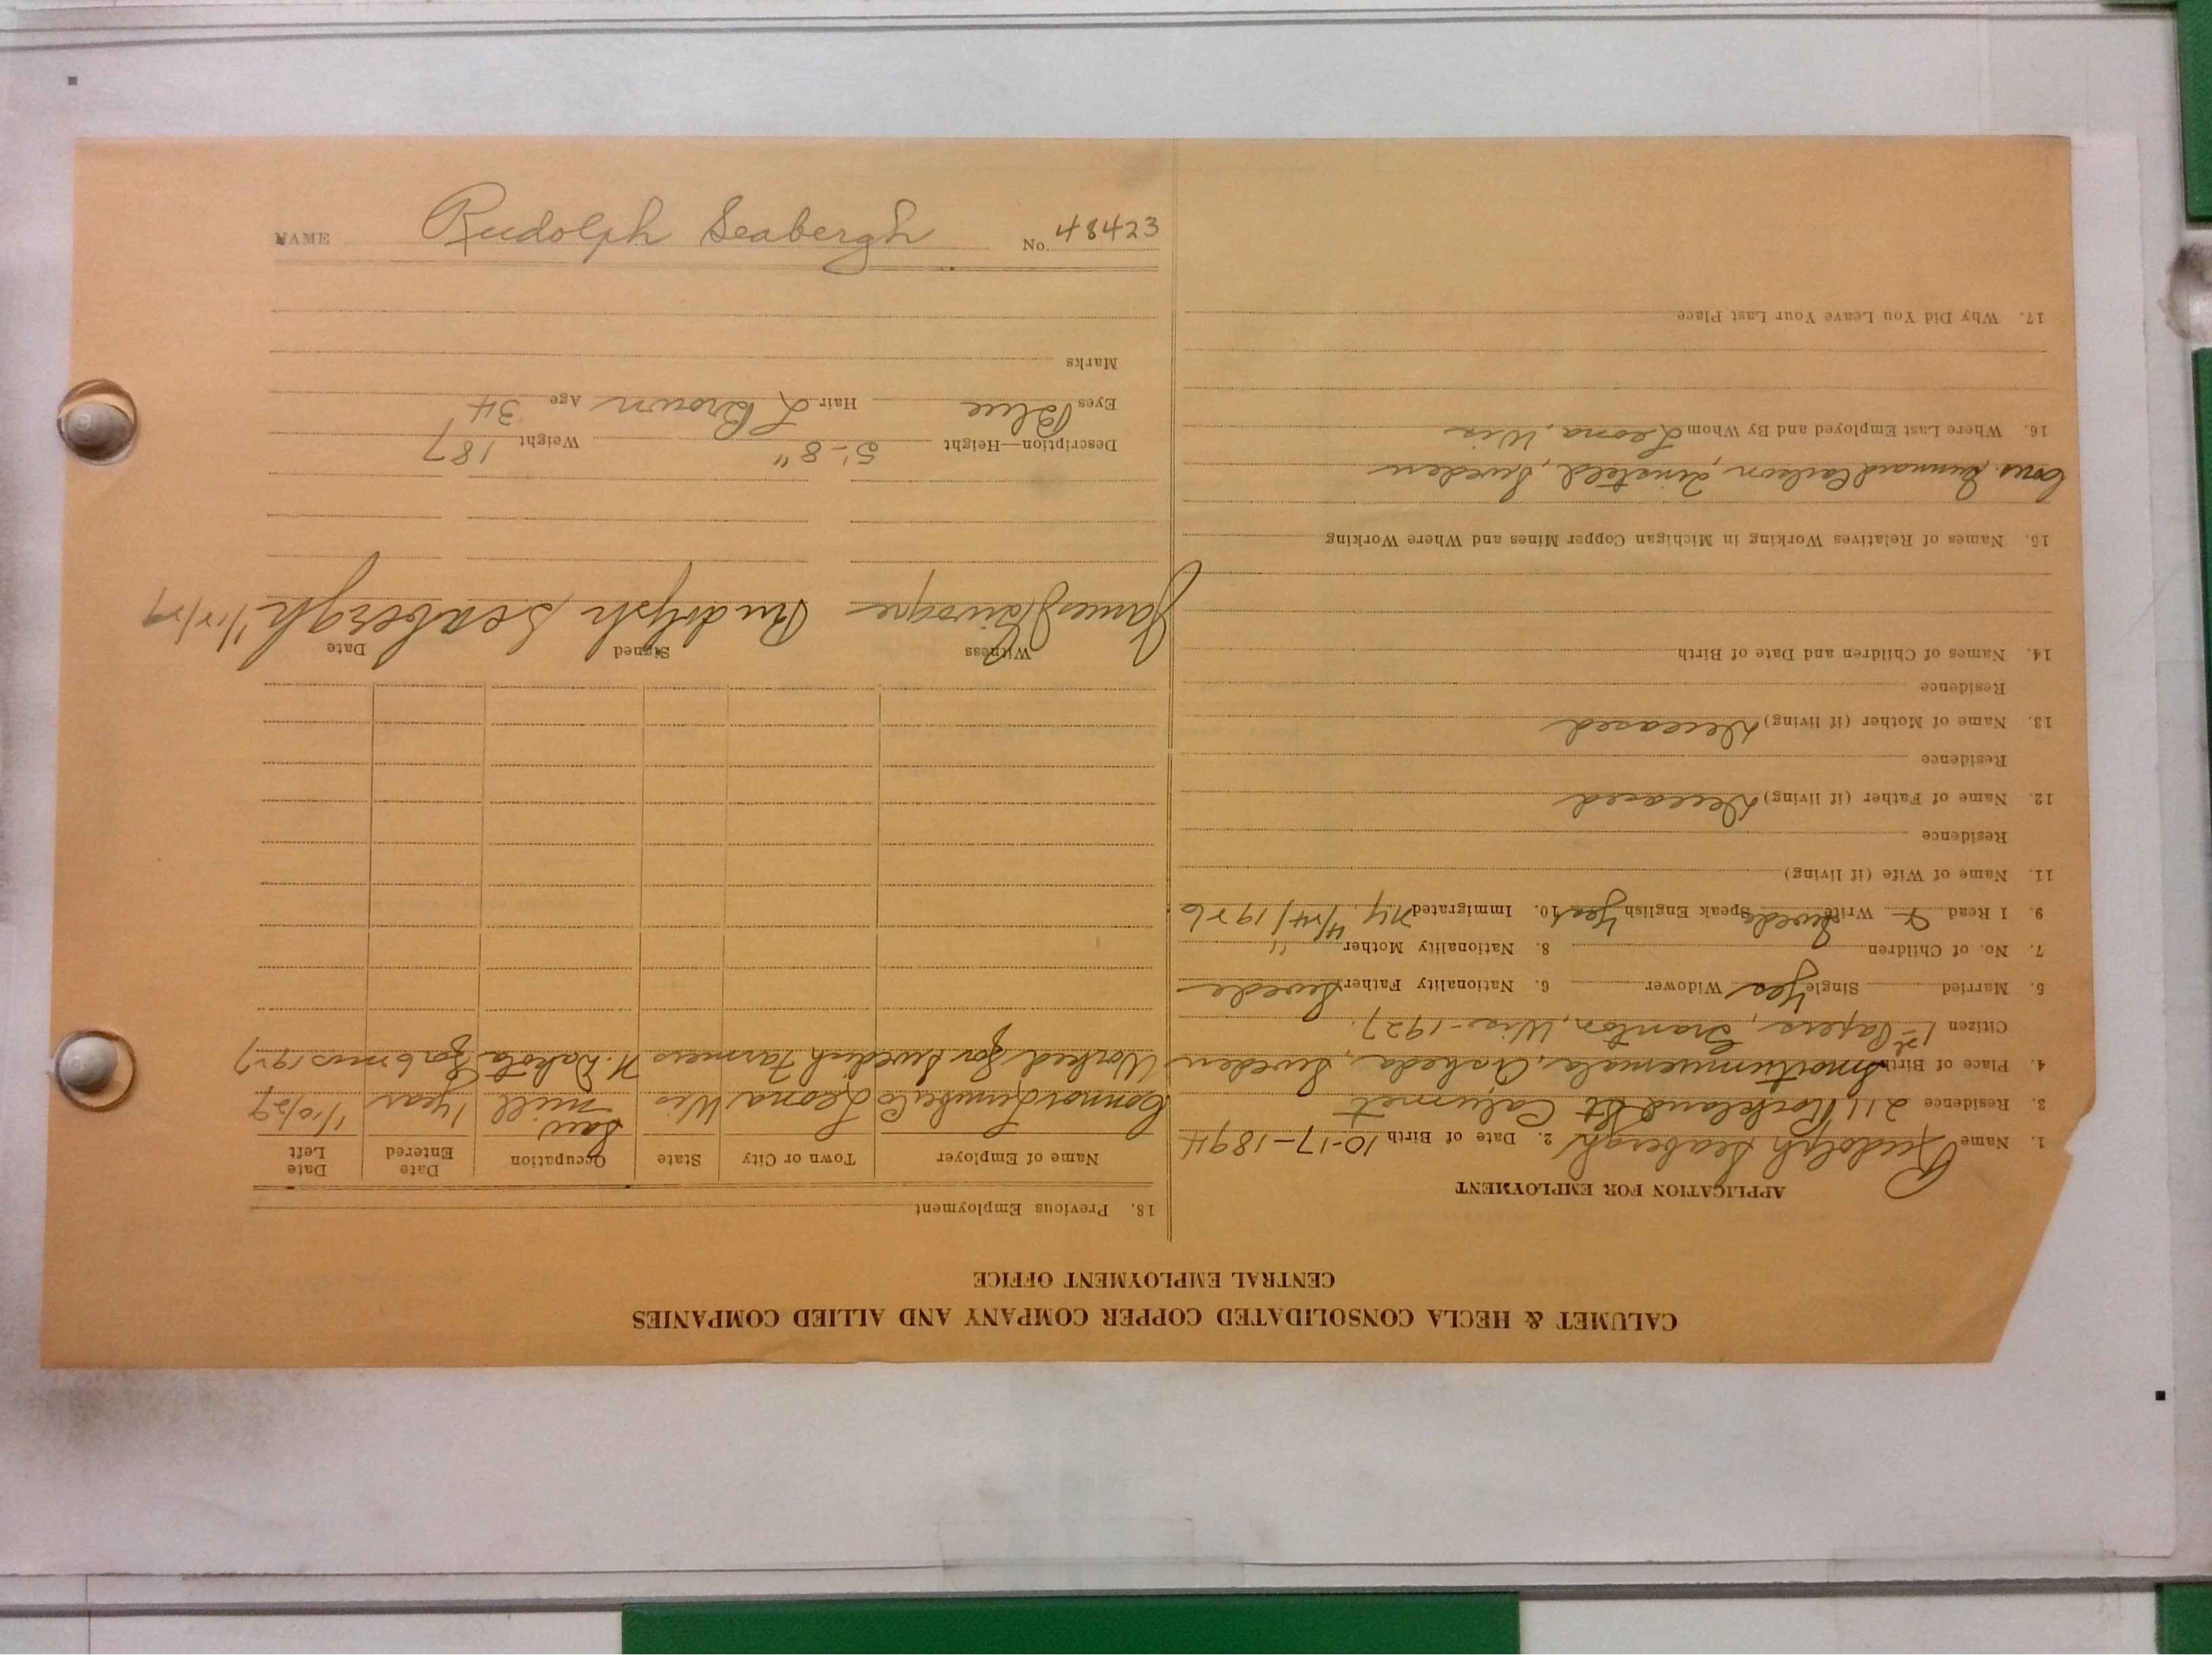 NAME Rudolph Seabergh No. 48423
CALUMET & HECLA CONSOLIDATED COPPER COMPANY AND ALLIED COMPANIES
CENTRAL EMPLOYMENT OFFICE
APPLICATION FOR EMPLOYMENT
1. Name Rudolph Seabergh 2. Date of Birth 10-17-1894
3. Residence 211 Rockland St Calumet
4. Place of Birth Sweden
Citizen 1st Papers, Granton, Wis-1927.
5. Married Single Yes Widower 6. Nationality Father Swede
7. No. of Children 8. Nationality Mother "
9. I Read & Write Swede Speak English Yes 10. Immigrated NY. 4/24/1926
11. Name of Wife (if living)
Residence
12. Name of Father (if living) Deceased
Residence
13. Name of Mother (if living) Deceased
Residence
14. Names of Children and Date of Birth
15. Names of Relatives Working in Michigan Copper Mines and Where Working
Carlson, Sweden
16. Where Last Employed and By Whom Leona, Wis
17. Why Did You Leave Your Last Place
18. Previous Employment
Name of Employer Town or City State Occupation Date Entered Date Left
Connor Lumber Co Leona Wis Saw mill 1 year 1/10/29
Worked for Swedish Farmers N. Dakota for 6 mos 1927
Witness Signed Date
James Rudolph Seabergh 1/12/29
Description—Height 5'-8" Weight 187
Eyes Blue Hair L Brown Age 34
Marks